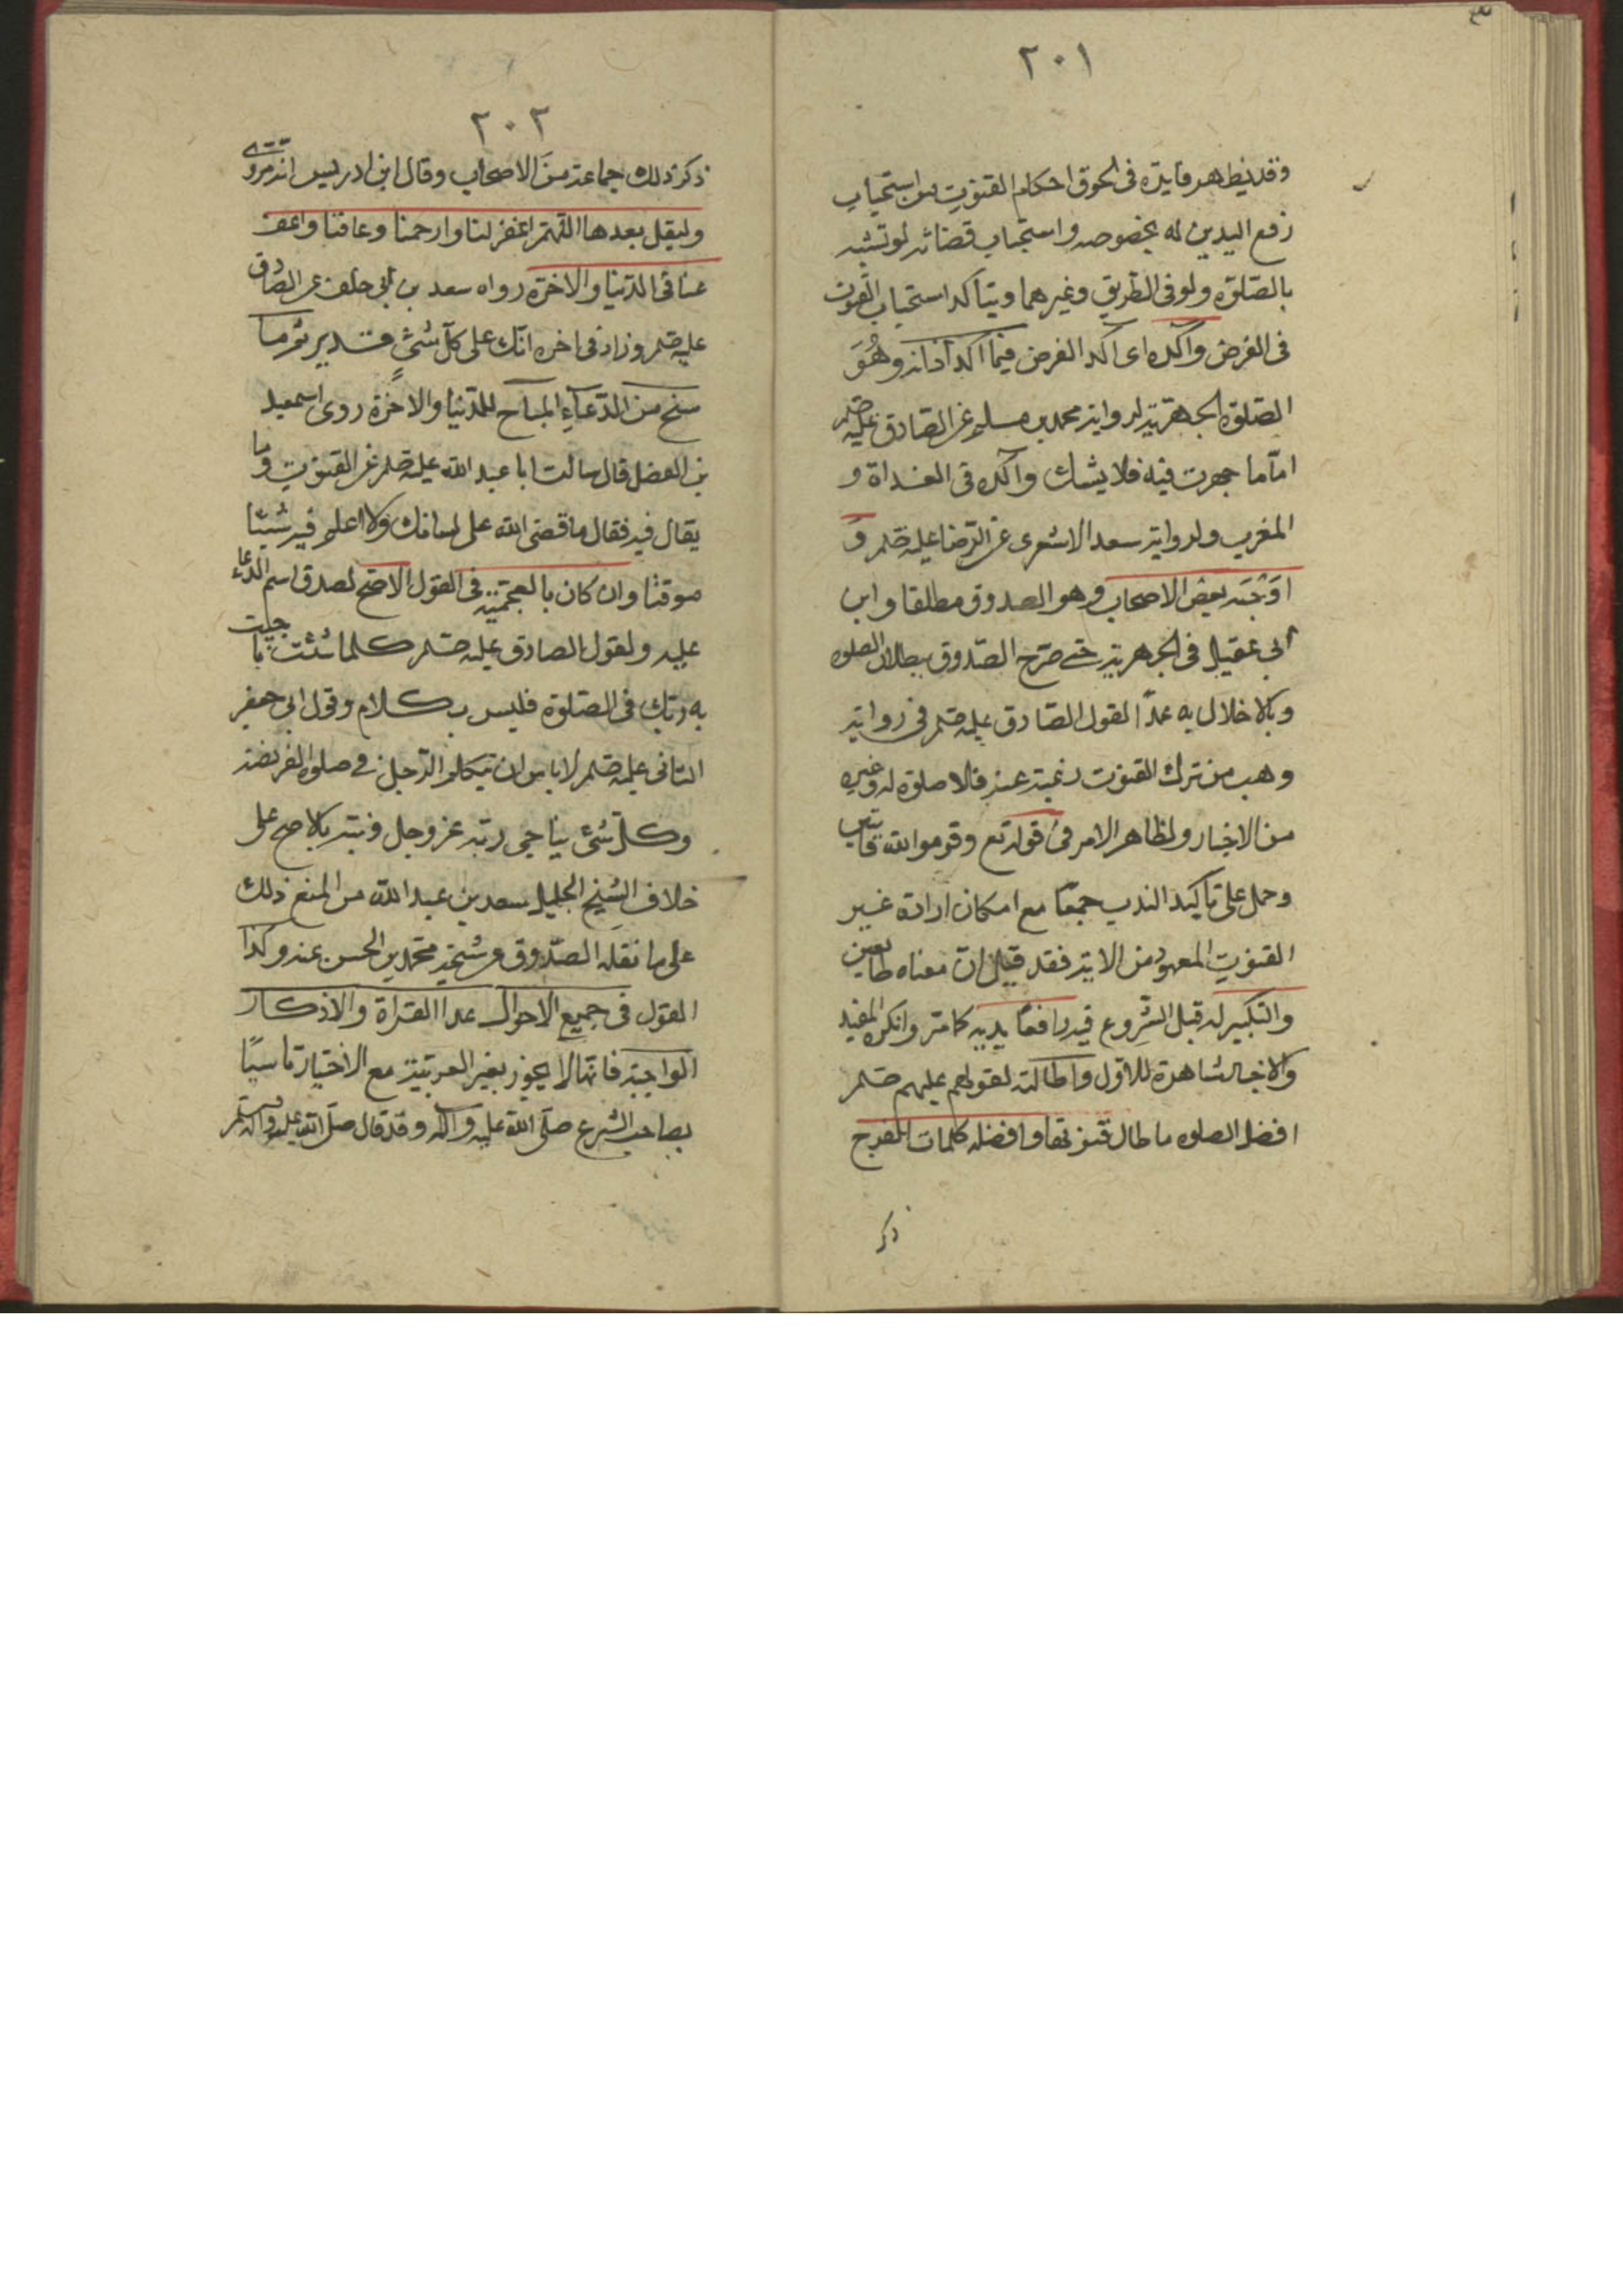 ٢٠١
وقد يظهر فايدته فى لحوق احكام القنوت من استحباب
رفع اليدين له بخصوصه واستحباب قضائه لو نسيه
بالصّلوة ولو فى الطريق وغيرهما ويتاكد استحباب القنوت
فى الفرض وآكده اى آكد الفرض فيما اكد اذانه وهُوَ
الصّلوة الجهرية لرواية محمد بن مسلم عن الصادق عليه صلم
امّا ما جهرت فيه فلا يشك وآكده فى الغداة و
المغرب ولرواية سعد الاشعرى عن الرّضا عليه صلم وَ
اوْجَبَه بعض الاصحاب وهو الصدوق مطلقا وابن
ابى عقيل فى الجهرية حتى صرّح الصّدوق ببطلان الصلوه
بالاخلال به عمدًا لقول الصّادق عليه صلم فى رواية
وهب من ترك القنوت رغبة عنه فلا صلوة له وغيره
من الاخبار ولظاهر الامر فى قوله تع وقوموا لله قانتين
وحمل على تاكيد الندب جمعًا مع امكان ارادة غير
القنوت المعهود من الاية فقد قيل ان معناه طائعين
والتكبير له قبل الشروع فيه رافعًا يديه كما مر وانكره المفيد
والاخبار شاهدة للاول واطالته لقولهم عليهم صلم
افضل الصلوه ما طال قنوتها وافضله كلمات الفرج
ذكر
٢٠٢
ذكر ذلك جماعة منَ الاصحاب وقال ابن ادريس انه مروى
وليقل بعدها اللّهمّ اغفر لنا وارحمنا وعافنا واعف
عنا فى الدّنيا والاخرة رواه سعد بن ابى خلف عن الصّادق
عليه صلم وزاد فى اخره انّك على كلّ شئ قدير ثم ما
سنح من الدّعآءِ المباح للدّنيا والاخرة روى اسمعيل
بن الفضل قال سالت ابا عبد الله عليه صلم عن القنوت وما
يقال فيه فقال ما قضى الله على لسانك ولا اعلم فيه شيئا
موقتا وان كان بالعجمية فى القول الاصح لصدق اسم الدعاء
عليه ولقول الصادق عليه صلم كلما ناجيت
به ربّك فى الصّلوة فليس بكلام وقول ابى جعفر
الثانى عليه صلم لا باس ان يتكلم الرّجل فى صلوة الفريضة
وكلّ شئ يناجى ربّه عز وجل ونبّه بالاصح على
خلاف الشيخ الجليل سعد بن عبد الله من المنع ذلك
على ما نقله الصّدوق عن شيخه محمّد بن الحسن عنه وكذا
القول فى جميع الاحوال عدا القراة والاذكار
الواجبة فانّها لا يجوز بغير العربيّة مع الاختيار تاسيًا
بصاحب الشرع صلّى الله عليه وآله وقد قال صلّى الله عليه وآله وسلم